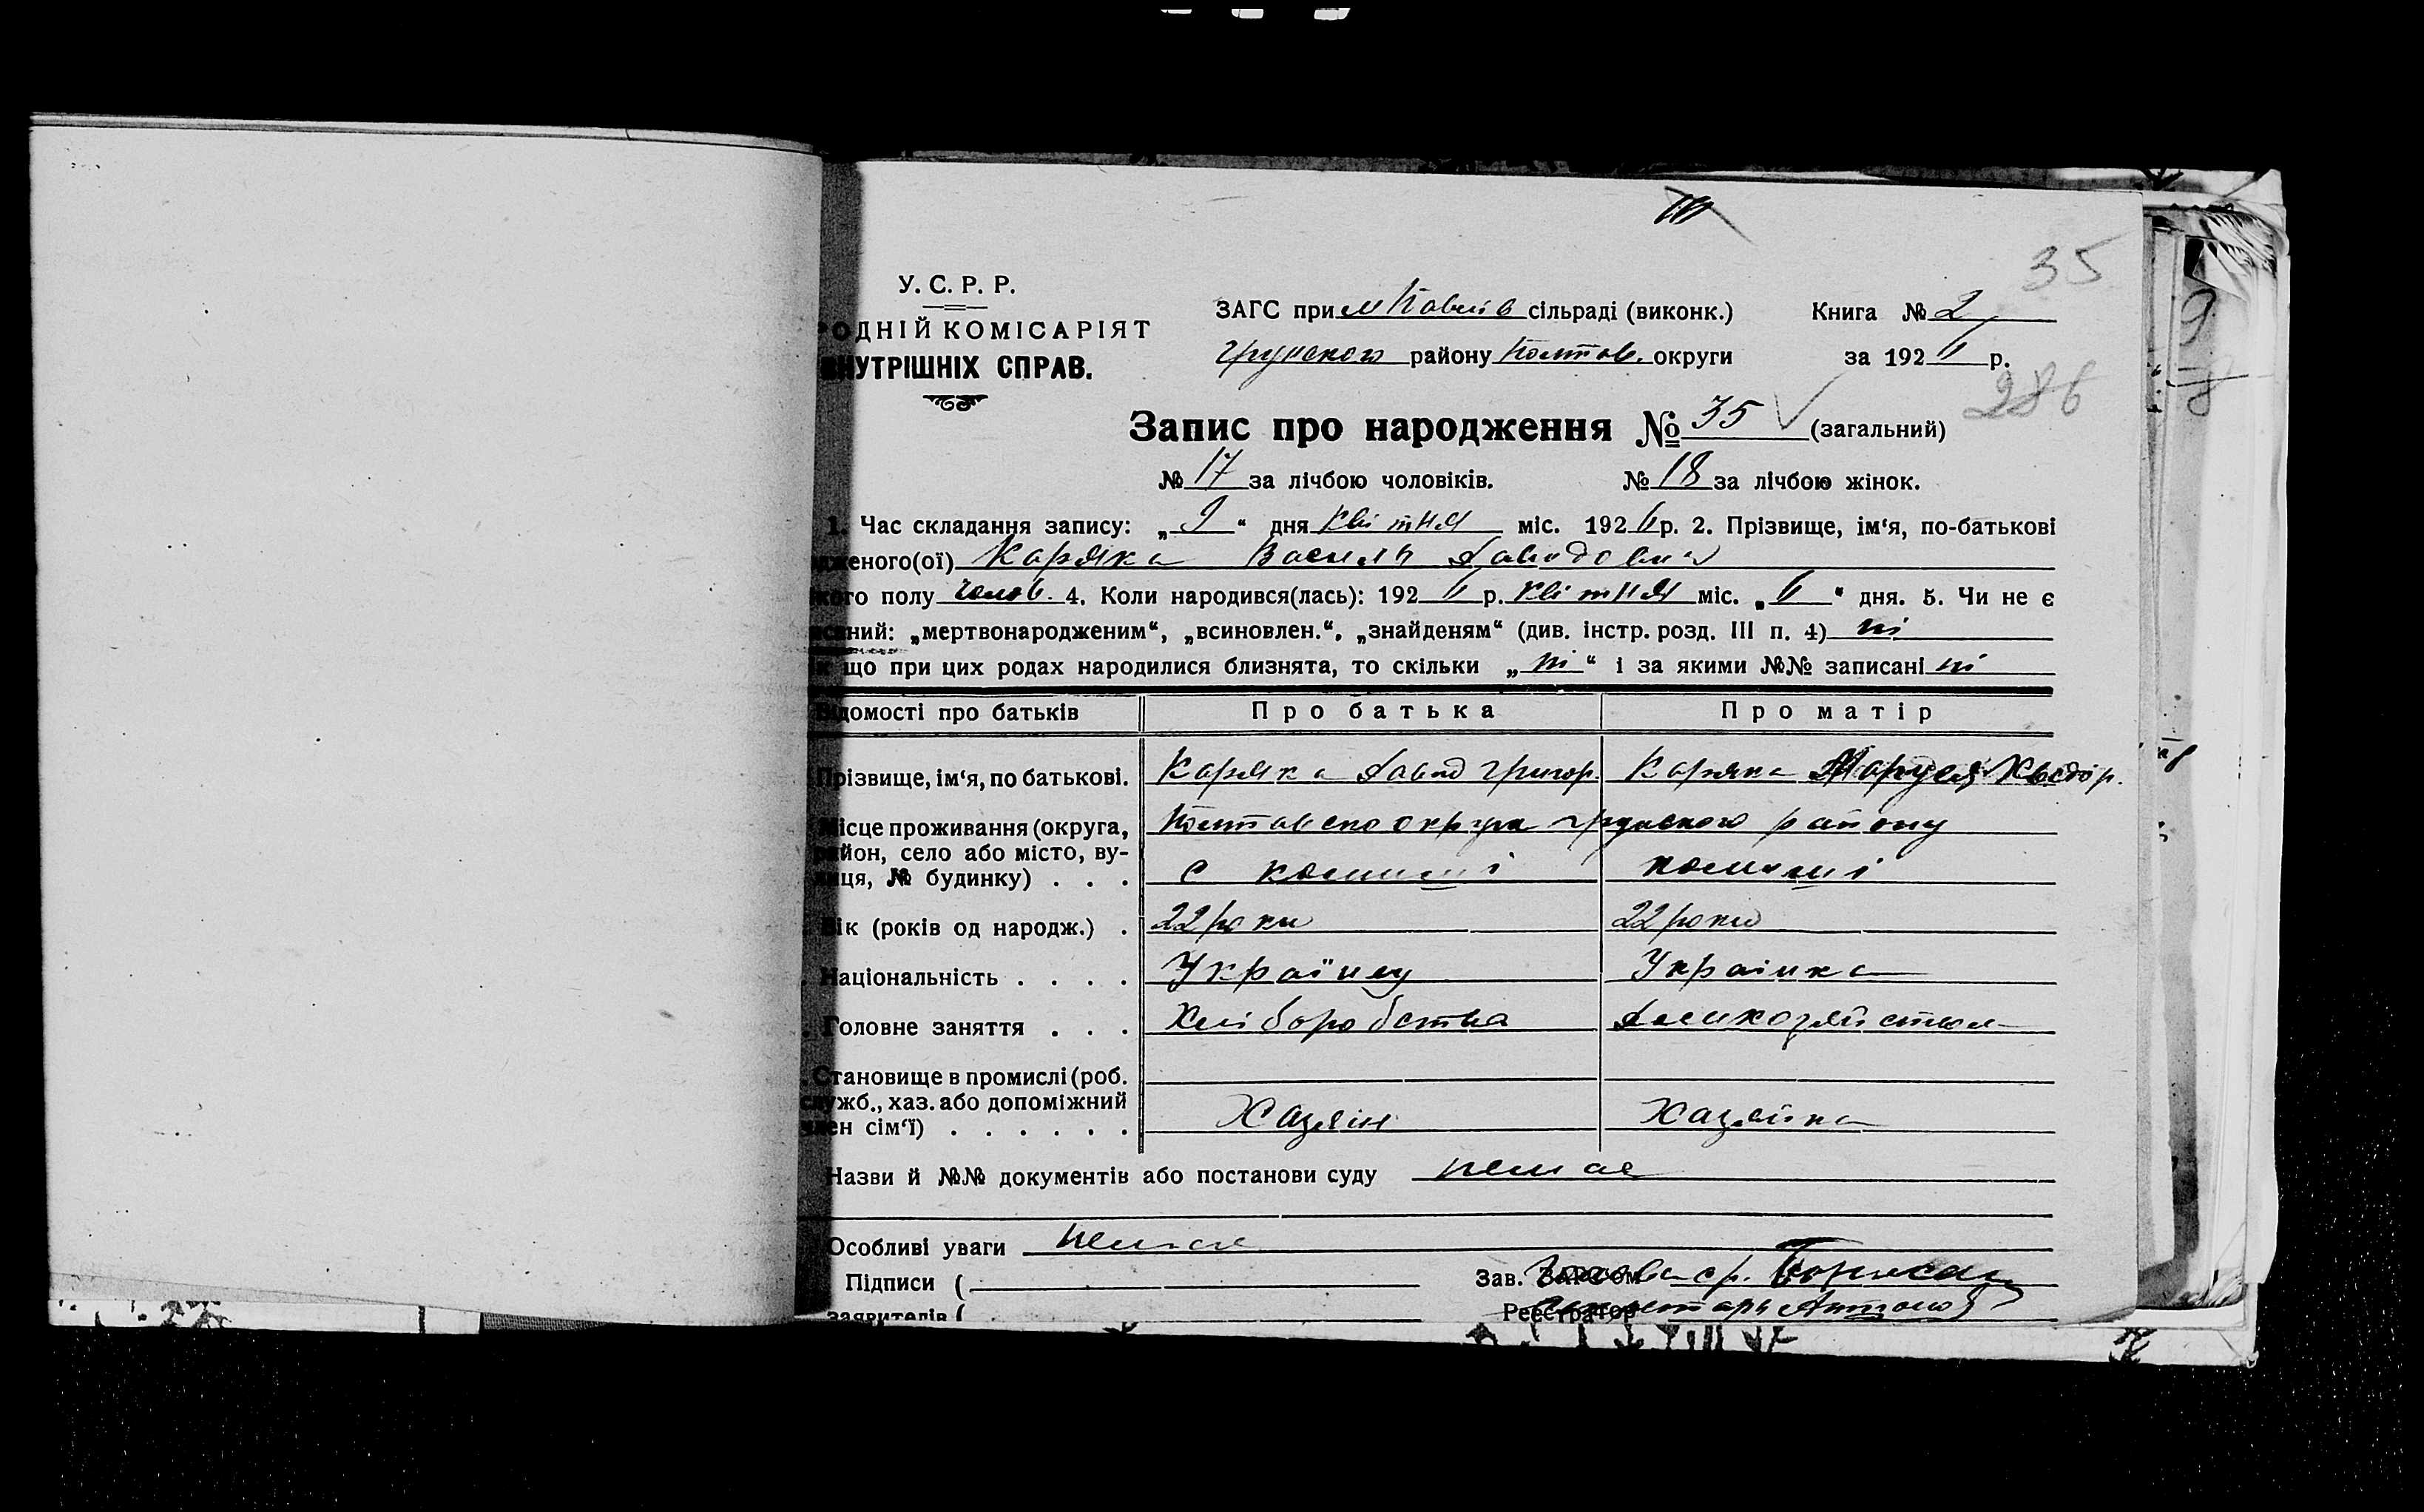 35
У. С. Р. Р.
ОДНІЙ КОМІСАРІЯТ
НУТРІШНІХ СПРАВ.
ЗАГС при сільраді (виконк.)
Книга № 2
району Полтав. округи
за 1926 р.
286
Запис про народження № 35 (загальний)
№ 17 за лічбою чоловіків. № 18 за лічбою жінок.
1. Час складання запису: „9“ дня квітня міс. 1926 р. 2. Прізвище, ім‘я, по-батькові
дженого(ої) Каряка Василь Давидович
кого полу челов. 4. Коли народився(лась): 1926 р. квітня міс. „6“ дня. 5. Чи не є
исаний: „мертвонародженим“, „всиновлен.“, „знайденям“ (див. інстр. розд. III п. 4) ні
к що при цих родах народилися близнята, то скільки „ні“ і за якими №№ записані ні
Відомості про батьків Про батька Про матір
Прізвище, ім‘я, по батькові. Каряка Давид Григор. Каряка Маруся Хведор.
Місце проживання (округа,
район, село або місто, ву-
лиця, № будинку) . . .
району
с комиші комиші
Вік (років од народж.) . 22 роки 22 роки
Національність . . . . Українец Українка
Головне заняття . . . Хліборобства
Становище в промислі (роб.
служб., хаз. або допоміжний
член сім‘ї) . . . . . . Хазяін Хазяйка
Назви й №№ документів або постанови суду немае
Особливі уваги немае
Підписи (
заявителів (
Зав. ЗАГСом
Реєстратор